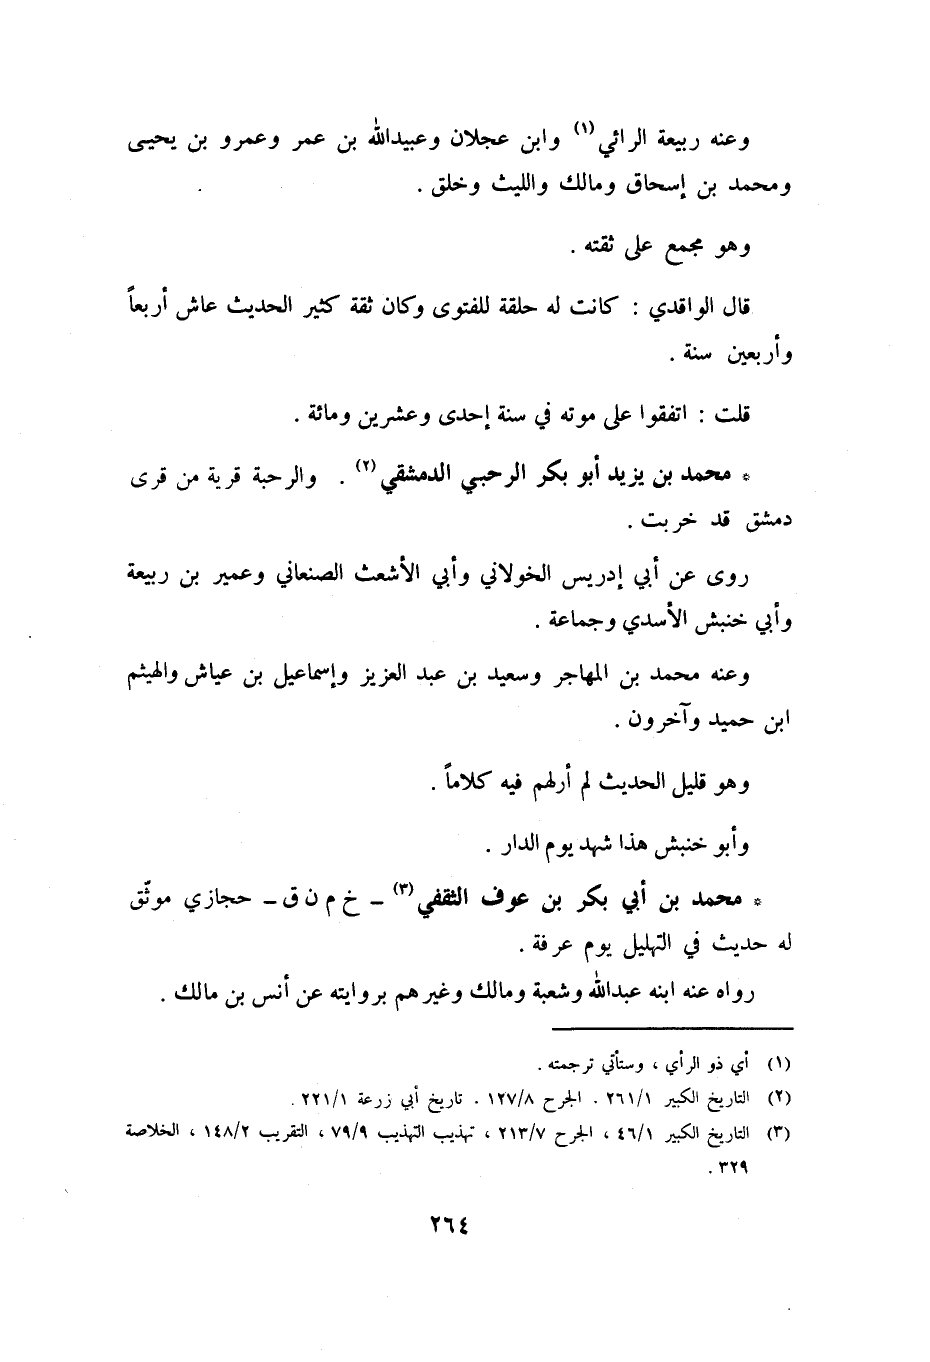 وعنه ربيعة الرائي(١) وابن عجلان وعبيدالله بن عمر وعمرو بن يحيى
ومحمد بن إسحاق ومالك والليث وخلق .
وهو مجمع على ثقته .
قال الواقدي : كانت له حلقة للفتوى وكان ثقة كثير الحديث عاش أربعاً
وأربعين سنة .
قلت : اتفقوا على موته في سنة إحدى وعشرين ومائة .
* محمد بن يزيد أبو بكر الرحبي الدمشقي(٢) . والرحبة قرية من قرى
دمشق قد خربت .
روى عن أبي إدريس الخولاني وأبي الأشعث الصنعاني وعمير بن ربيعة
وأبي خنبش الأسدي وجماعة .
وعنه محمد بن المهاجر وسعيد بن عبد العزيز وإسماعيل بن عياش والهيثم
ابن حميد وآخرون .
وهو قليل الحديث لم أرلهم فيه كلاماً .
وأبو خنبش هذا شهد يوم الدار .
* محمد بن أبي بكر بن عوف الثقفي(٣) ـ خ م ن ق ـ حجازي موثّق
له حديث في التهليل يوم عرفة .
رواه عنه ابنه عبدالله وشعبة ومالك وغيرهم بروايته عن أنس بن مالك .
(١) أي ذو الرأي ، وستأتي ترجمته .
(٢) التاريخ الكبير ٢٦١/١ . الجرح ١٢٧/٨ . تاريخ أبي زرعة ٢٢١/١ .
(٣) التاريخ الكبير ٤٦/١ ، الجرح ٢١٣/٧ ، تهذيب التهذيب ٧٩/٩ ، التقريب ١٤٨/٢ ، الخلاصة
٣٢٩ .
٢٦٤